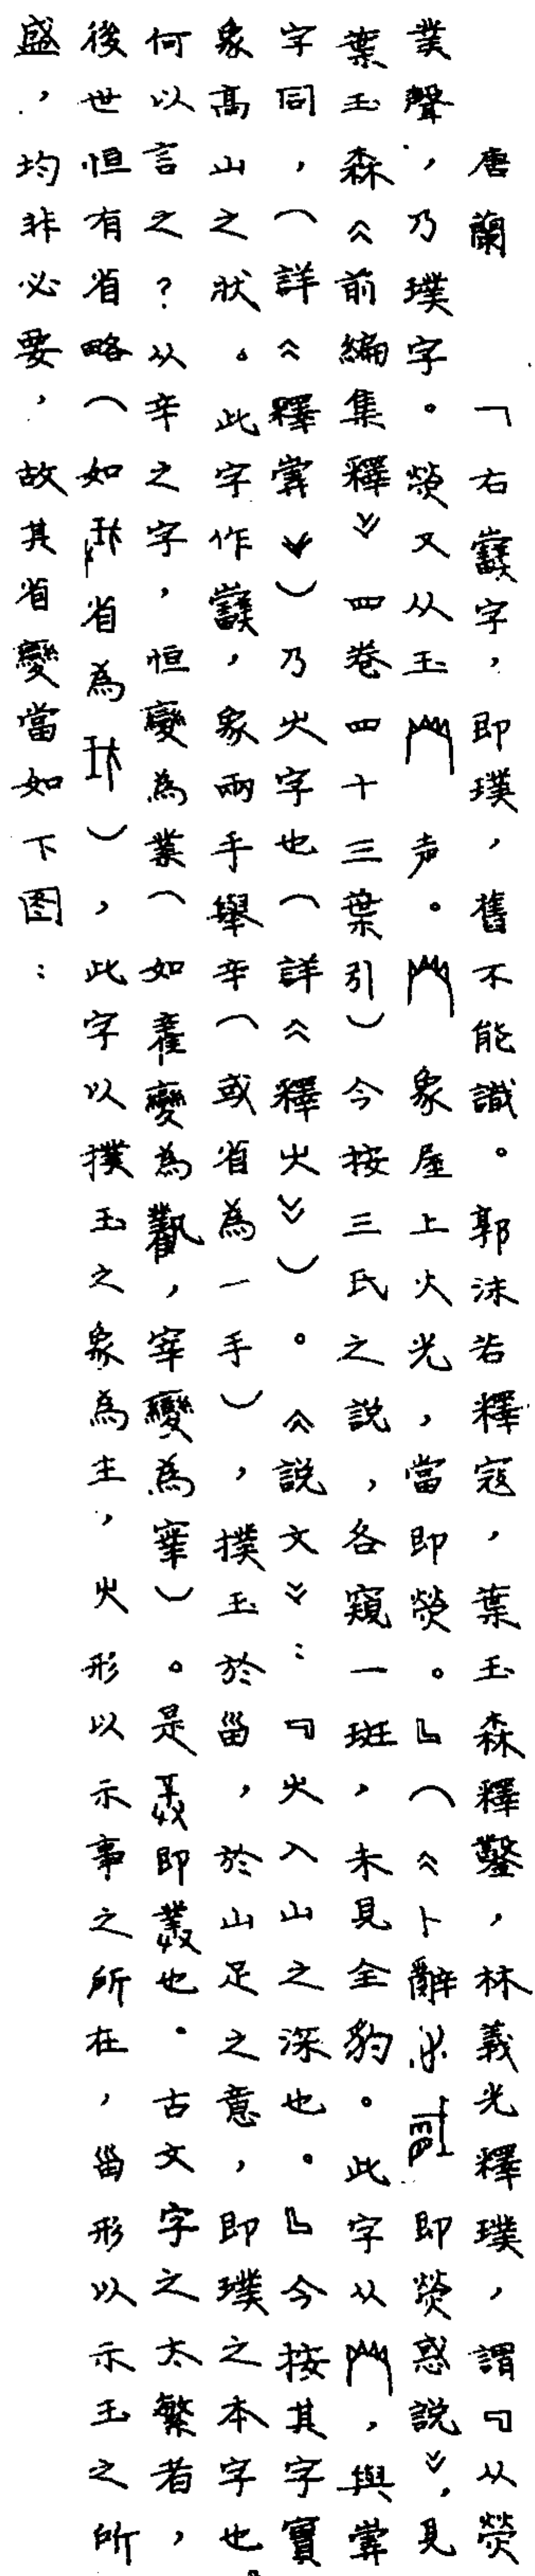 唐蘭 「右字,即璞,舊不能識。郭沫若釋寇,葉玉森釋鑿,林義光釋璞,謂『从熒
業聲,乃璞字。熒又从玉声。象屋上火光,當即熒。』(《卜辭即熒惑説》,見
葉玉森《前編集釋》四卷四十三葉引)今按三氏之説,各窺一斑,未見全豹。此字从,與
字同,(詳《釋》)乃火字也(詳《釋火》)。《説文》:『火入山之深也。』今按其字實
象高山之狀。此字作,象兩手舉辛(或省為一手),撲玉於甾,於山足之意,即璞之本字也。
何以言之?从辛之字,恒變為業(如變為,宰變為)。是即也。古文字之太繁者,
後世恒有省略(如省為),此字以撲玉之象為主,火形以示事之所在,甾形以示玉之所
盛,均非必要,故其省變當如下图: